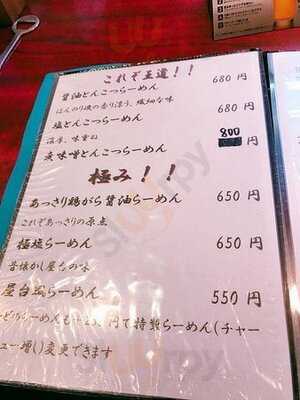 これぞ王道！！
醤油とんこつらーめん 680 円
ほんのり 香り漂う、繊細な味
塩とんこつらーめん 680 円
濃厚、味重ね
炙味噌とんこつらーめん 800 円
極み！！
あっさり鶏がら醤油らーめん 650 円
これぞあっさりの原点
極塩らーめん 650 円
昔懐かし屋台の味
屋台風らーめん 550 円
どのらーめんも 円で特製らーめん(チャー
シュー増)変更できます